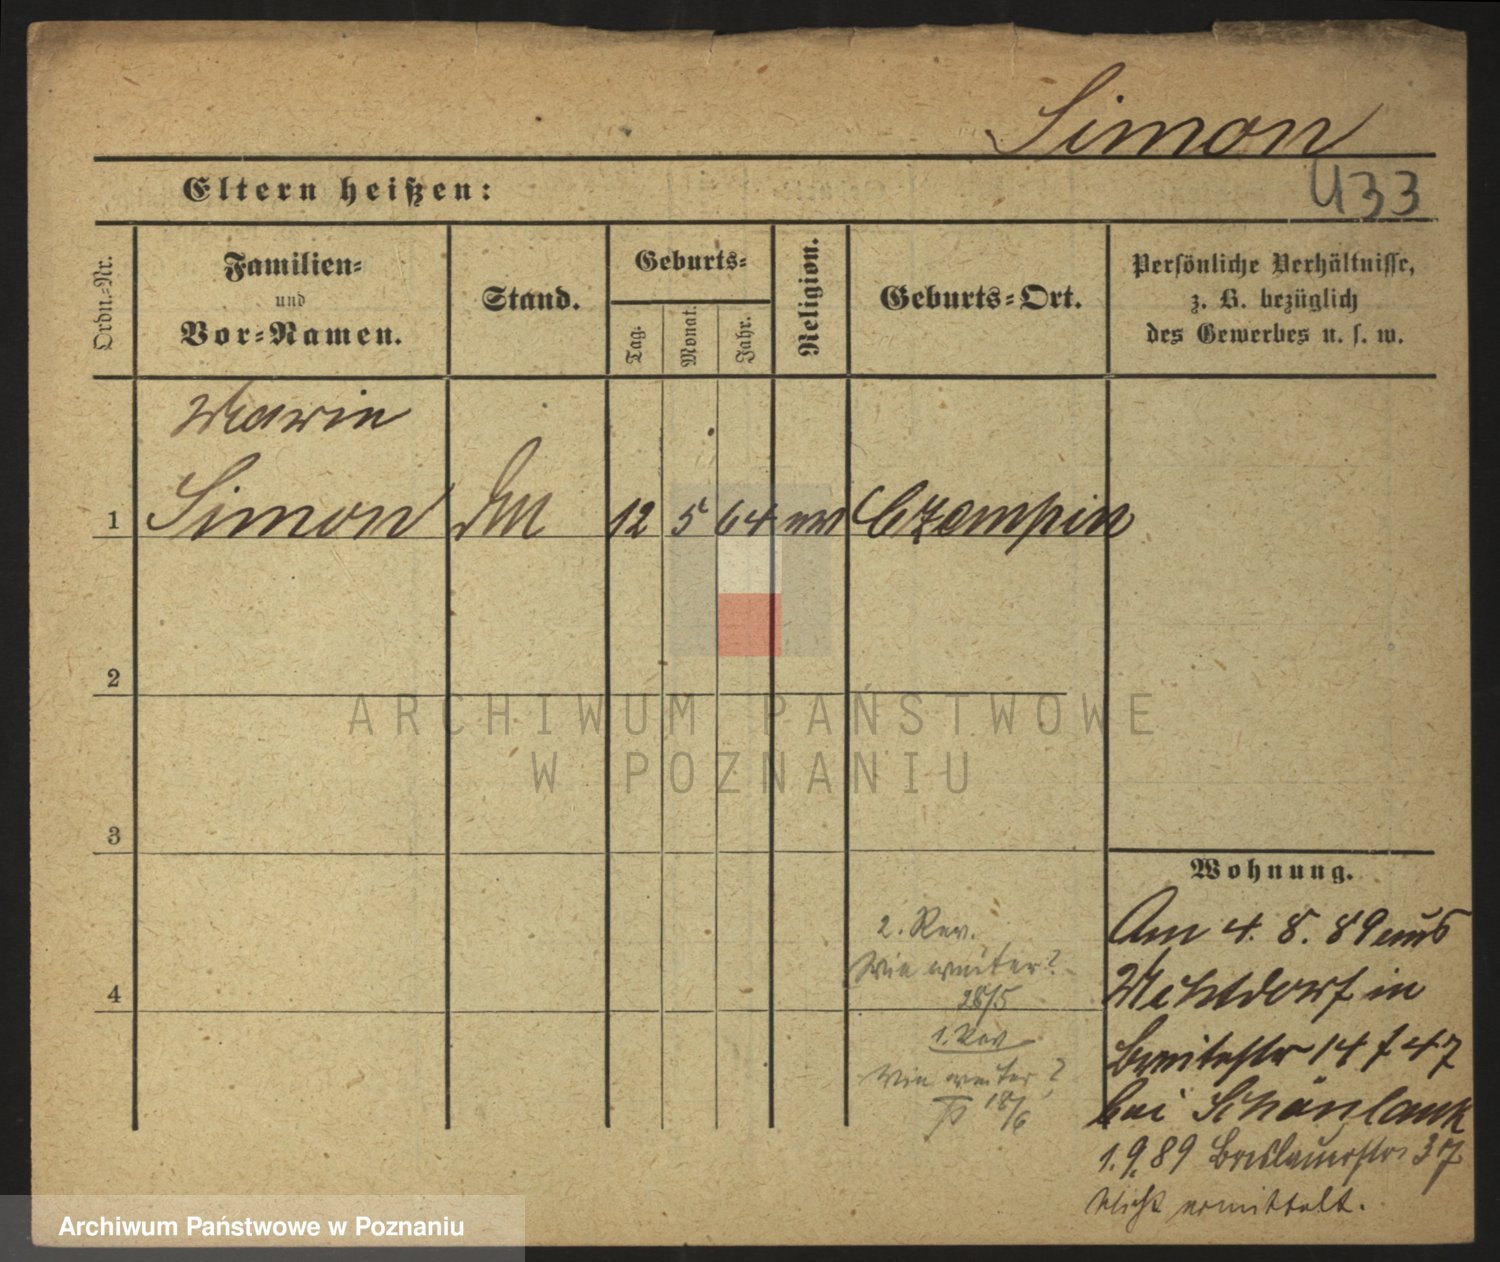 Simon
Eltern heißen:
433
Ordn.-Nr.
Familien-
und
Vor-Namen.
Stand.
Geburts-
Tag.
Monat.
Jahr.
Religion.
Geburts-Ort.
Persönliche Verhältnisse,
z. B. bezüglich
des Gewerbes u. s. w.
Marie
1 Simon 12 5 64 Czempin
2
ARCHIWUM PAŃSTWOWE
W POZNANIU
3
4
2. Rev.
Wie weiter?
28/5
1. Rev
Wie weiter?
18/6
Wohnung.
Am 4. 8. 89 aus
in
Breitestr 14 f 47
bei Schönlank
1. 9. 89 Breslauerstr 37
nicht ermittelt.
Archiwum Państwowe w Poznaniu